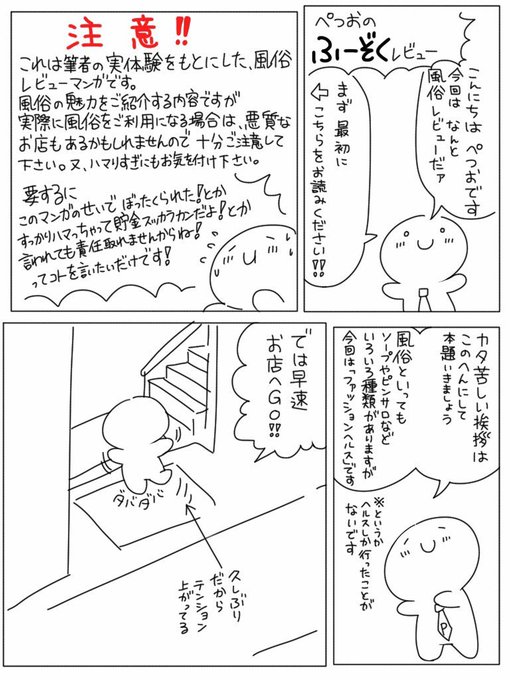 ぺつおの
ふーぞくレビュー
こんにちは ぺつおです
今回は なんと
風俗レビューだァ
まず 最初に
←こちらをお読みください!!
注意!!
これは筆者の実体験をもとにした、風俗
レビューマンガです。
風俗の魅力をご紹介する内容ですが
実際に風俗をご利用になる場合は、悪質な
お店もあるかもしれませんので十分ご注意して
下さい。又、ハマりすぎにもお気を付け下さい。
要するに
このマンガのせいでぼったくられた!とか
すっかりハマっちゃって貯金スッカラカンだよ!とか
言われても責任取れませんからね!
ってコトを言いたいだけです!
カタ苦しい挨拶は
このへんにして
本題いきましょう
風俗といっても
ソープやピンサロなど
いろいろ種類がありますが
今回は「ファッションヘルス」です
※というか
ヘルスしか行ったことが
ないです
P
では早速
お店へGO!!
ダバダバ
久しぶり
だから
テンション
上がってる